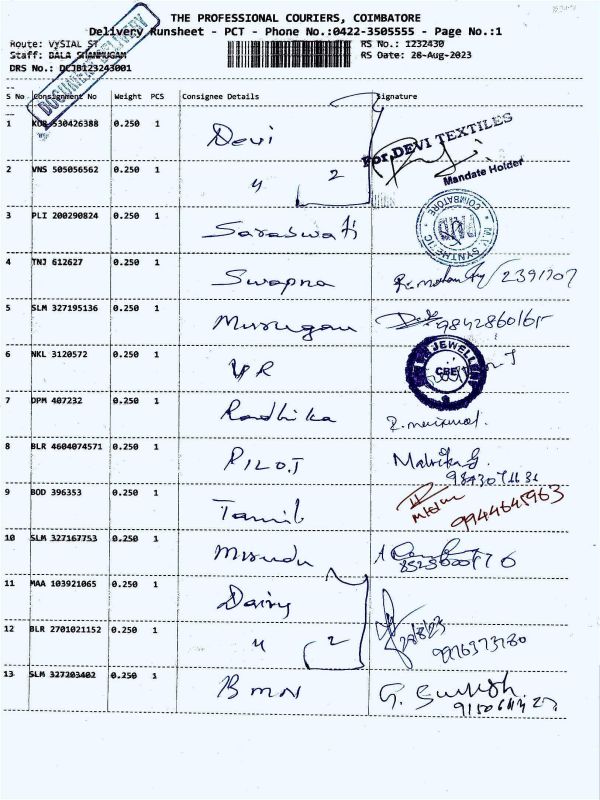 THE PROFESSIONAL COURIERS, COIMBATORE
Delivery Runsheet - PCT - Phone No.:0422-3505555 - Page No.:1
Route: VYSIAL ST RS No.: 1232430
Staff: BALA SHANMUGAM RS Date: 28-Aug-2023
DRS No.: DCJB123243001
DOCUMENT DELIVERY
S No Consignment No Weight PCS Consignee Details Signature
1 530426388 0.250 1 Devi For DEVI TEXTILES
Mandate Holder
2 VNS 505056562 0.250 1 " 2
3 PLI 200290824 0.250 1 Saraswati M.V. SYNTHETIC COIMBATORE
4 TNJ 612627 0.250 1 Swapna 2391707
5 SLM 327195136 0.250 1 Murugan 9842860165
6 NKL 3120572 0.250 1 VR JEWELLERY CBE
7 DPM 407232 0.250 1 Radhika
8 BLR 4604074571 0.250 1 PILOT
9 BOD 396353 0.250 1 Tamil 9944645963
10 SLM 327167753 0.250 1
11 MAA 103921065 0.250 1 Dairy
12 BLR 2701021152 0.250 1 " 2 28/8/23
9976373780
13 SLM 327203402 0.250 1 BMN G. Suresh